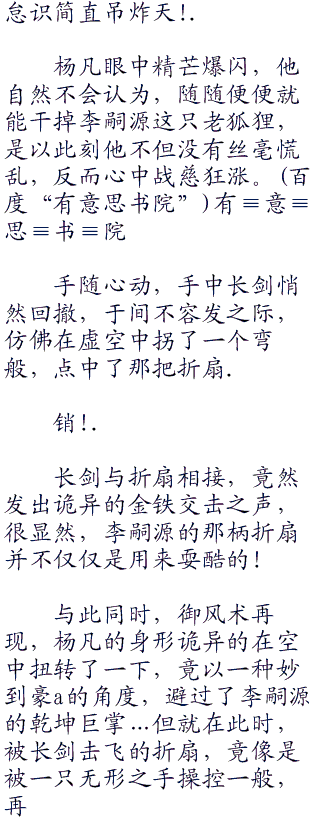 怠识简直吊炸天!.
杨凡眼中精芒爆闪，他
自然不会认为，随随便便就
能干掉李嗣源这只老狐狸，
是以此刻他不但没有丝毫慌
乱，反而心中战慈狂涨。(百
度“有意思书院”)有≡意≡
思≡书≡院
手随心动，手中长剑悄
然回撤，于间不容发之际，
仿佛在虚空中拐了一个弯
般，点中了那把折扇.
销!.
长剑与折扇相接，竟然
发出诡异的金铁交击之声，
很显然，李嗣源的那柄折扇
并不仅仅是用来耍酷的!
与此同时，御风术再
现，杨凡的身形诡异的在空
中扭转了一下，竟以一种妙
到豪a的角度，避过了李嗣源
的乾坤巨掌...但就在此时，
被长剑击飞的折扇，竟像是
被一只无形之手操控一般，
再